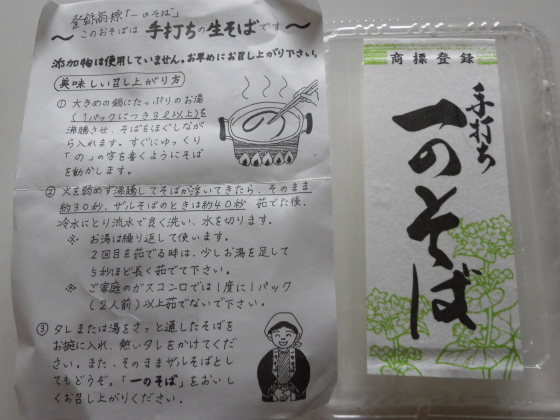 登録商標「一のそば」
〜このおそばは 手打ちの生そば です〜
添加物は使用していません。お早めにお召し上がり下さい。
美味しい召し上がり方
① 大きめの鍋にたっぷりのお湯
(1パックにつき3ℓ以上)を
沸騰させ、そばをほぐしなが
ら入れます。すぐにゆっくり
「の」の字を書くようにそば
を動かします。
② 火を弱めず沸騰してそばが浮いてきたら、そのまま
約30秒、ザルそばのときは約40秒 茹でた後、
冷水にとり流水で良く洗い、水を切ります。
※ お湯は繰り返して使います。
2回目を茹でる時は、少しお湯を足して
5秒ほど長く茹でて下さい。
※ ご家庭のガスコンロでは1度に1パック
(2人前)以上茹でないで下さい。
③ タレまたは湯をさっと通したそばを
お椀に入れ、熱いタレをかけてくだ
さい。また、そのままザルそばとし
てもどうぞ。「一のそば」をおいし
くお召し上がりください。
商標登録
手打ち
一のそば